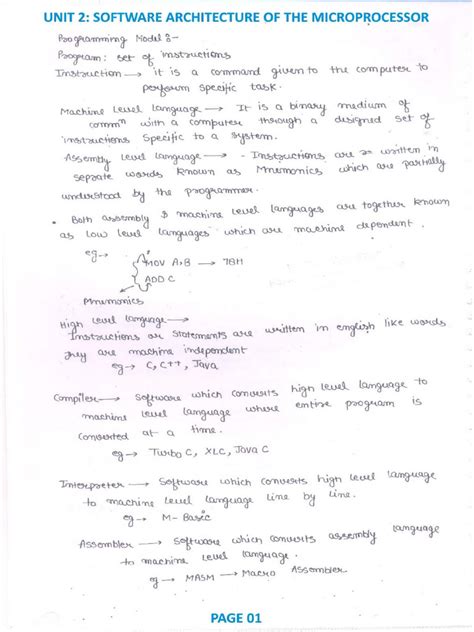 UNIT 2: SOFTWARE ARCHITECTURE OF THE MICROPROCESSOR
Programming Model :-
Program: set of instructions
Instruction → it is a command given to the computer to
perform specific task.
Machine Level language → It is a binary medium of
commn with a computer through a designed set of
instructions specific to a system.
Assembly level language → - Instructions are written in
seprate words known as Mnemonics which are partially
understood by the programmer.
• Both assembly & machine level languages are together known
as low level languages which are machine dependent.
eg → MOV A,B → 78H
ADD C
Mnemonics
High level language →
Instructions or statements are written in english like words
They are machine independent
eg → C, C++, Java
Compiler → Software which converts high level language to
machine level language where entire program is
converted at a time.
eg → Turbo C, XLC, Java C
Interpreter → Software which converts high level language
to machine level language line by line.
eg → M-Basic
Assembler → Software which converts assembly language
to machine level language.
eg → MASM → Macro Assembler.
PAGE 01